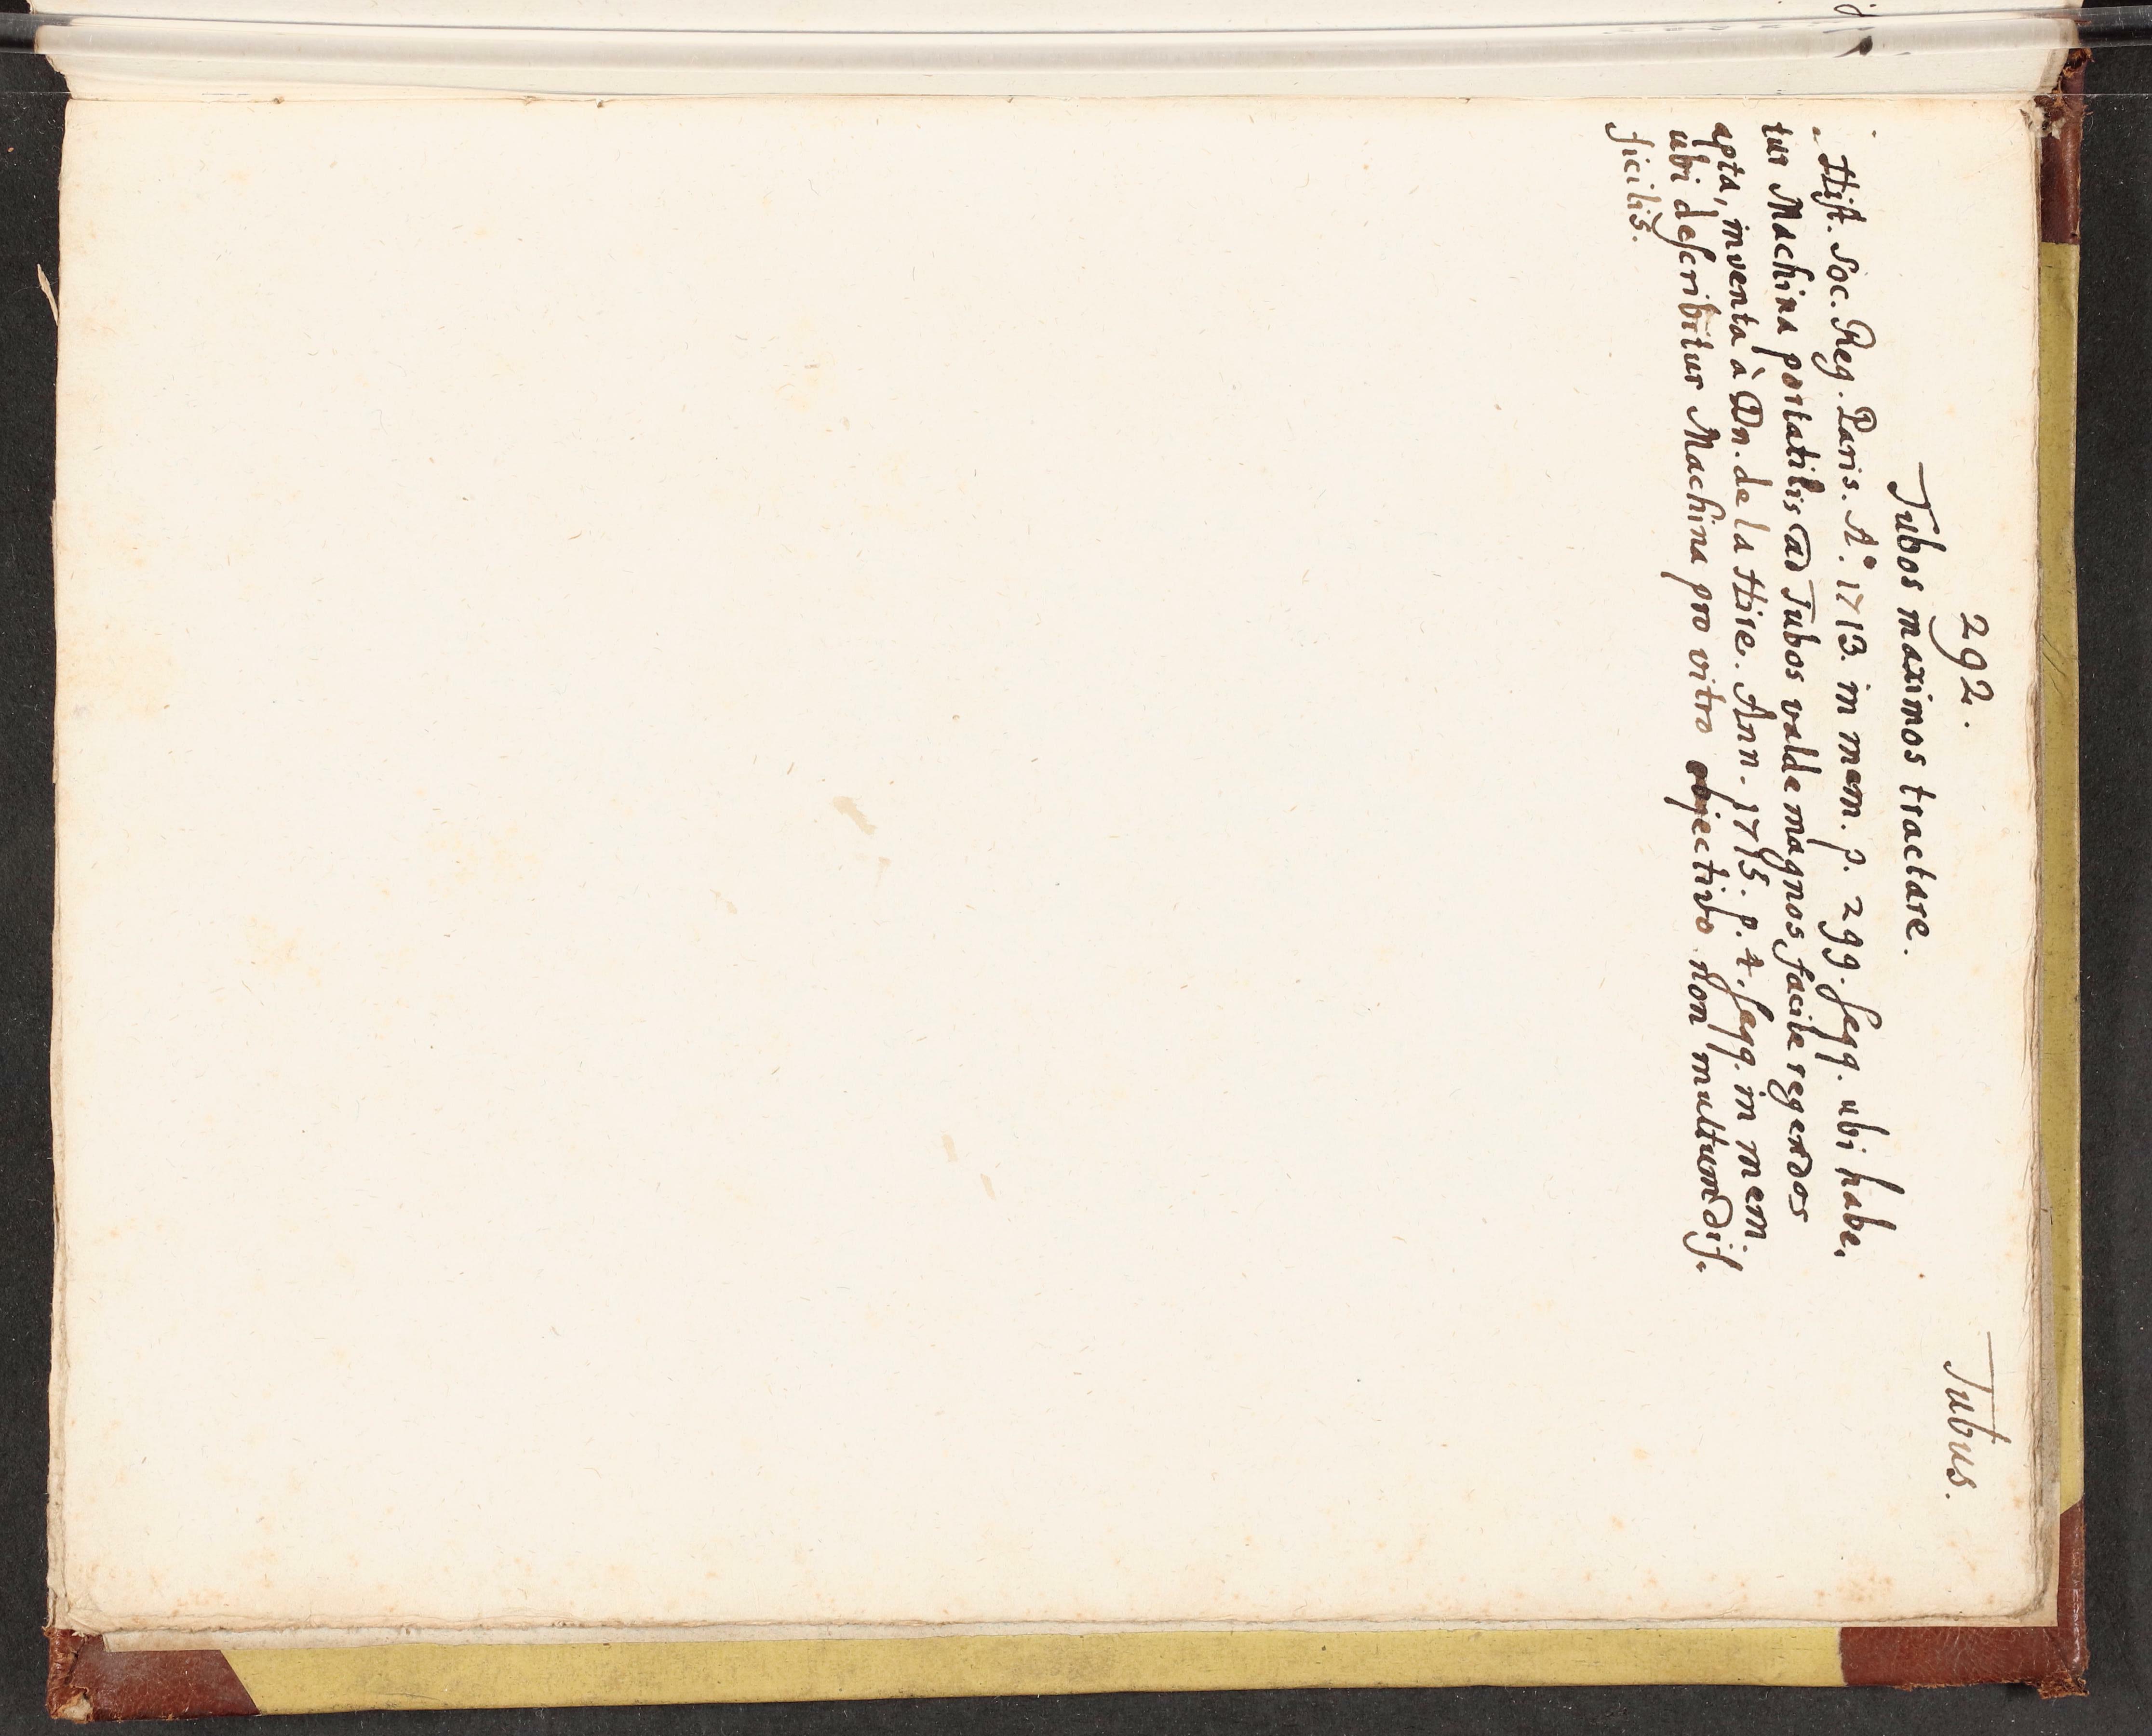 292.
Tubus.
Tubos maximos tractare.
Hist. Soc. Reg. Paris. A°. 1713. in mem. p. 299. seqq. ubi habe,
tur Machina portatilis ad Tubos valde magnos facile regendos
apta, inventa à Dn. de la Hire. Ann. 1715. p. 4. seqq. in mem.
ubi describitur Machina pro vitro objectivo non multum dif-
ficilis.